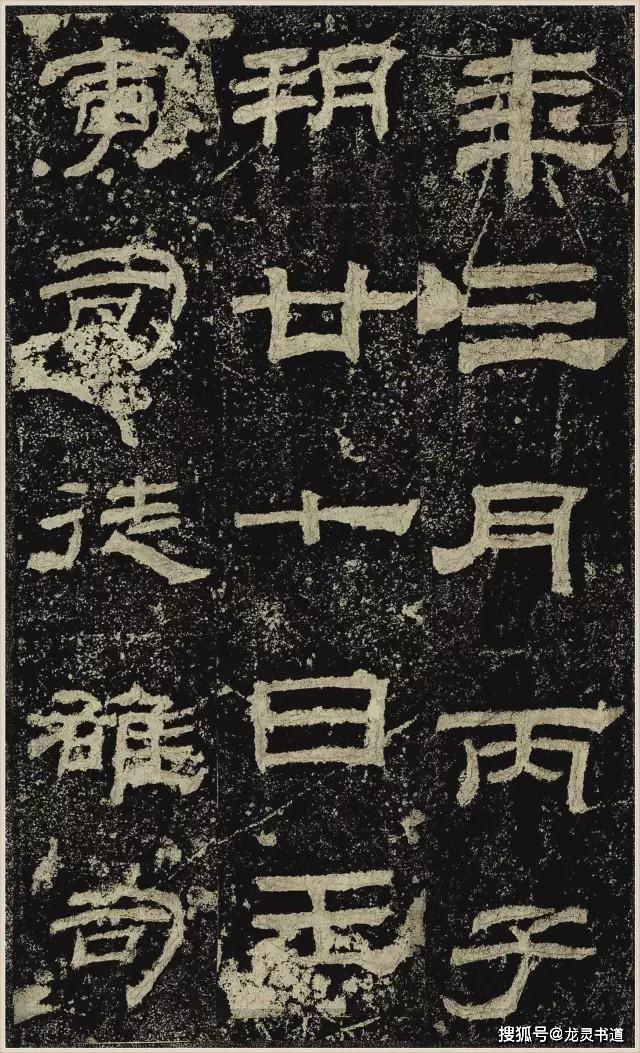 年三月丙子
朔廿七日壬
寅司徒雄司
搜狐号@龙灵书道